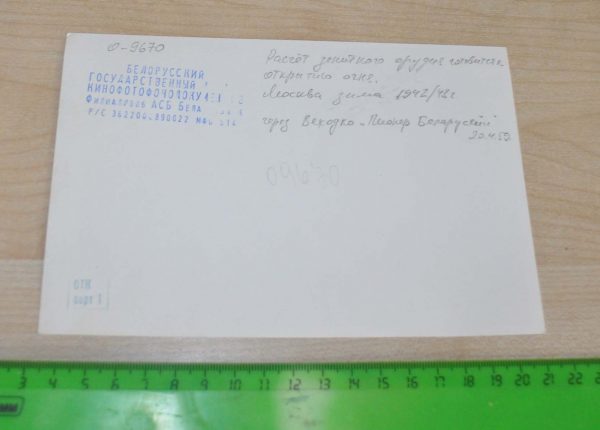 0-9670
БЕЛОРУССКИЙ
ГОСУДАРСТВЕННЫЙ
КИНОФОТОФОНОДОКУ
ФИЛИАЛ АСБ БЕЛА
Р/С 362200 890022 МФО
Расчёт зенитного орудия готовится к
открытию огня.
Москва зима 1942/43г
через Веходко "Пионер Беларуси"
20.4.59
ОТК
сорт 1
3 4 5 6 7 8 9 10 11 12 13 14 15 16 17 18 19 20 21 22